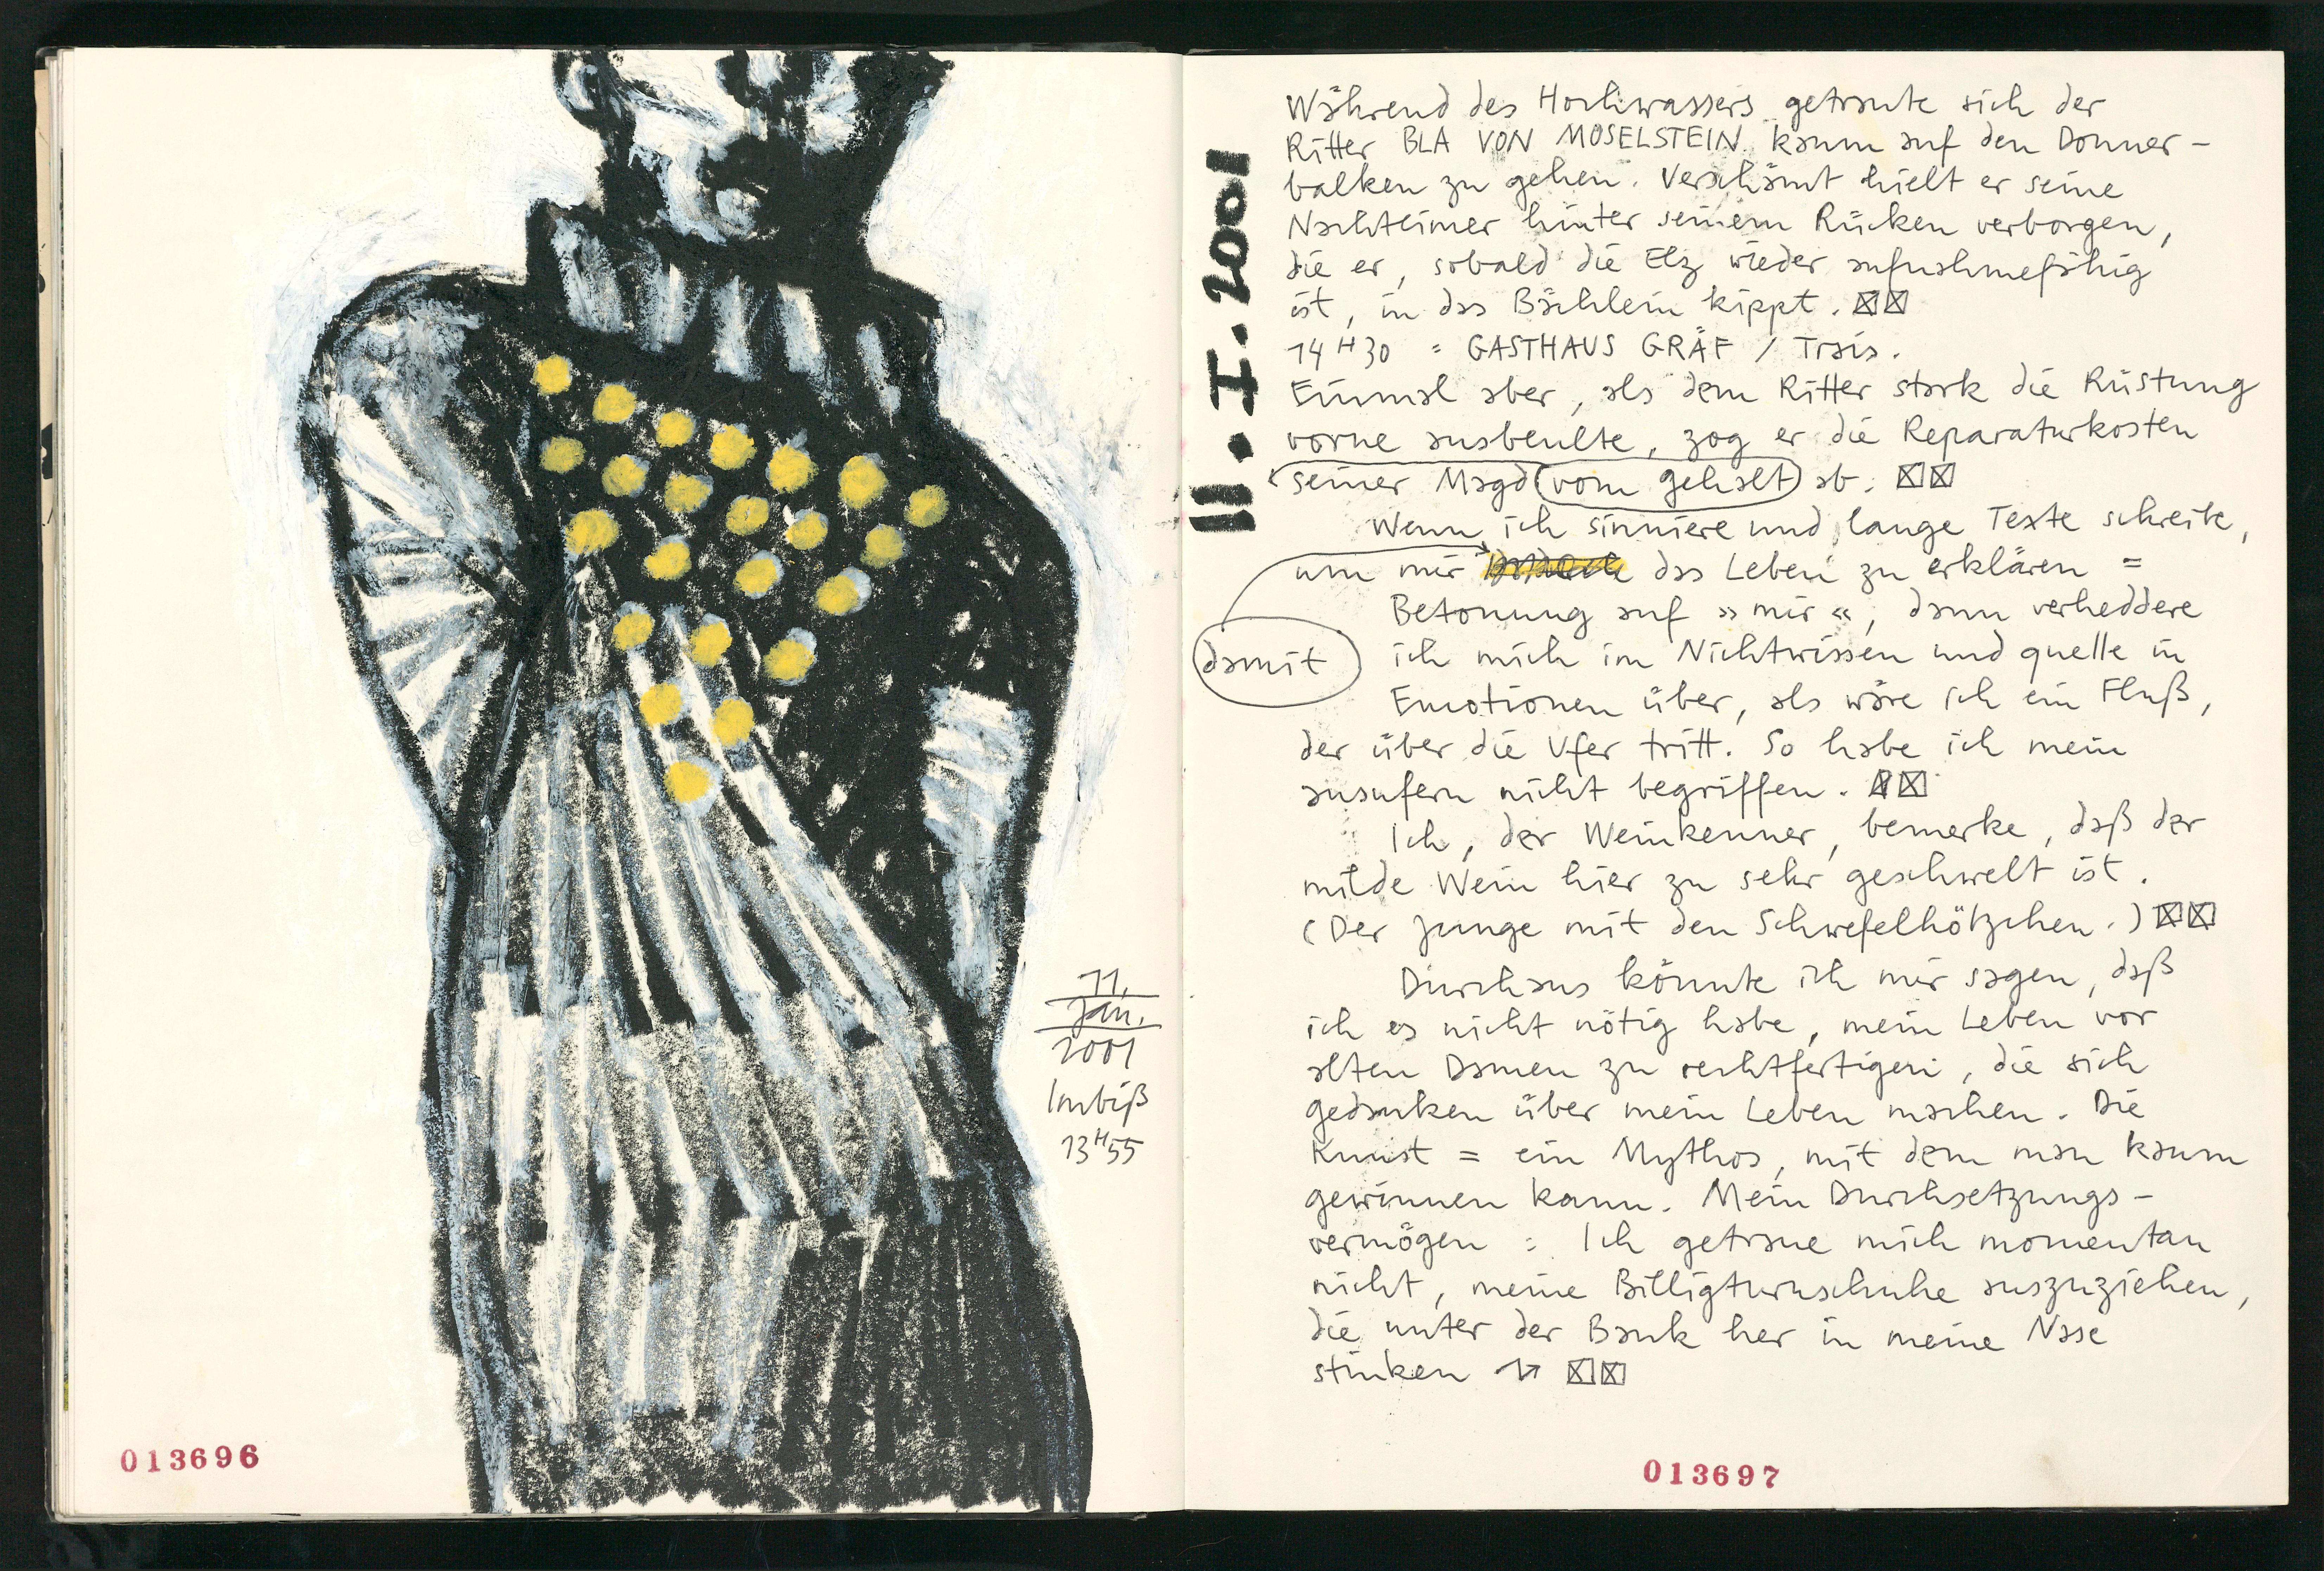 11.
Jan.
2001
Imbiß
13H55
013696
11.I.2001
Während des Hochwassers getraute sich der
Ritter BLA VON MOSELSTEIN kaum auf den Donner-
balken zu gehen. Verschämt hielt er seine
Nachteimer hinter seinem Rücken verborgen,
die er, sobald die Elz wieder aufnahmefähig
ist, in das Bächlein kippt. ☒☒
14H30 = GASTHAUS GRÄF / Trais.
Einmal aber, als dem Ritter stark die Rüstung
vorne ausbeulte, zog er die Reparaturkosten
seiner Magd vom gehalt ab. ☒☒
Wenn ich sinniere und lange Texte schreibe,
um mir das Leben zu erklären =
Betonung auf »mir«, dann verheddere
damit
ich mich im Nichtwissen und quelle in
Emotionen über, als wäre ich ein Fluß,
der über die Ufer tritt. So habe ich mein
ausufern nicht begriffen. ☒☒
Ich, der Weinkenner, bemerke, daß der
milde Wein hier zu sehr geschwelt ist.
(Der Junge mit den Schwefelhölzchen.) ☒☒
Durchaus könnte ich mir sagen, daß
ich es nicht nötig habe, mein Leben vor
alten Damen zu rechtfertigen, die sich
gedanken über mein Leben machen. Die
Kunst = ein Mythos, mit dem man kaum
gewinnen kann. Mein Durchsetzungs-
vermögen : Ich getraue mich momentan
nicht, meine Billigturnschuhe auszuziehen,
die unter der Bank her in meine Nase
stinken ☒☒
013697